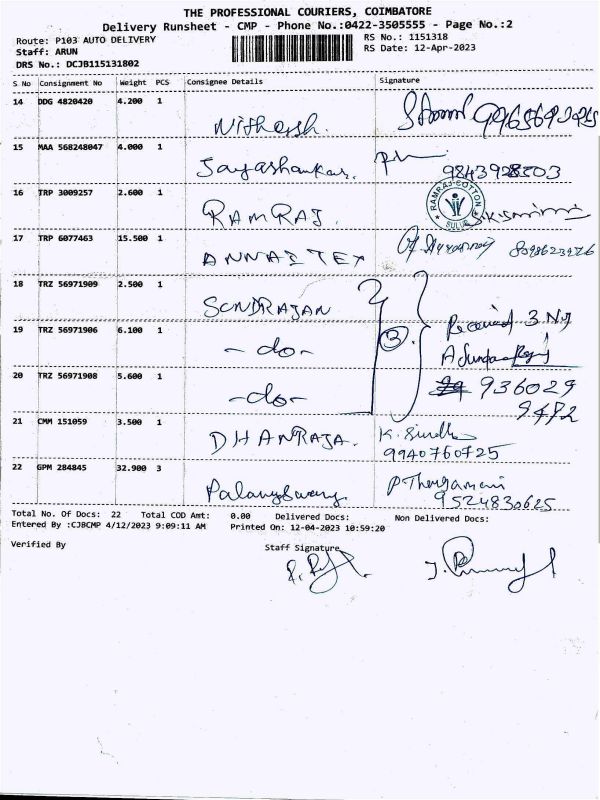 THE PROFESSIONAL COURIERS, COIMBATORE
Delivery Runsheet - CMP - Phone No.:0422-3505555 - Page No.:2
Route: P103 AUTO DELIVERY
RS No.: 1151318
Staff: ARUN
RS Date: 12-Apr-2023
DRS No.: DCJB115131802
S No Consignment No Weight PCS Consignee Details Signature
14 DDG 4820420 4.200 1
Nithersh.
15 MAA 568248047 4.000 1
Jayashankar.
16 TRP 3009257 2.600 1
RAMRAJ.
RAMRAJ COTTON
SULUR
17 TRP 6077463 15.500 1
ANNAI TEX
18 TRZ 56971909 2.500 1
SUNDRAJAN
Received 3 Nos
19 TRZ 56971906 6.100 1
-do-
3
20 TRZ 56971908 5.600 1
-do-
936029
9492
21 CMM 151059 3.500 1
DHANRAJA.
K. Sindhu
9940760725
22 GPM 284845 32.900 3
Palanyswamy
P Thangamani
9524830625
Total No. Of Docs: 22 Total COD Amt: 0.00 Delivered Docs: Non Delivered Docs:
Entered By :CJBCMP 4/12/2023 9:09:11 AM Printed On: 12-04-2023 10:59:20
Verified By
Staff Signature